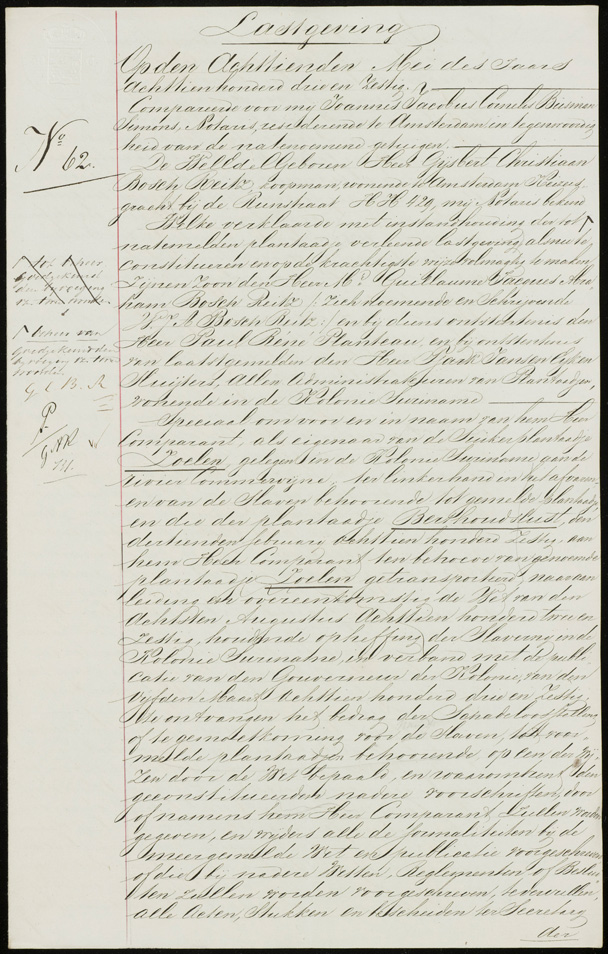 Lastgeving
Op den Achttienden Mei des Jaars
Achttienhonderd drie en Zestig,
Compareerde voor mij Joannes Jacobus Cornelis
Simons, Notaris, residerende te Amsterdam in tegenwoordig
heid van de natenoemene getuigen.
No 62.
De WelEdelGeboren Heer Gijsbert Christiaan
Bosch Reitz, koopman, wonende te Amsterdam Keizers
gracht bij de Reestraat HH 429, mij Notaris bekend
Welke verklaarde met instandhouding der tot
natemelden plantaadje verleende lastgeving alsnu te
constitueren en op de krachtigste wijze Volmagtig te maken
Zijnen Zoon den Heer Mr. Guillaume Jacques Abra
ham Bosch Reitz, /: Zich noemende en Schrijvende
G. J. A. Bosch Reitz :/ en bij diens ontstentenis den
Heer Paul René Planteau, en bij ontstentenis
van laatstgemelden den Heer Jansen Eyken
Sluyters, Allen Administrateuren van Plantaadjes,
wonende in de Kolonie Suriname
goedgekeurd
goedgekeurd de
G C B R
Speciaal om voor en in naam van hem Heer
Comparant, als eigenaar van de Suikerplantaadje
Zoelen, gelegen in de Kolonie Suriname, aan de
rivier Commewijne, ter linkerhand in het afvaren
en van de Slaven behoorende tot gemelde plantaadje
en die der plantaadje Berthoudslust, den
dertienden februari achttien honderd Zestig aan
hem Heer Comparant ten behoeve van genoemde
plantaadje Zoelen getransporteerd, naar aan
leiding en overeenkomstig de Wet van den
Achtsten Augustus Achttien honderd twee en
Zestig, houdende opheffing der Slavernij in de
Kolonie Suriname, in verband met de publi
catie van den Gouverneur der Kolonie, van den
Vijfden Maart Achttien honderd drie en Zestig
te ontvangen het bedrag der Schadeloosstelling
of tegemoetkoming voor de Slaven, tot voor
melde plantaadjes behoorende, op een der wij
Zen door de Wet bepaald, en waaromtrent den
geconstitueerde nadere voorschriften door
of namens hem Heer Comparant Zullen worden
gegeven, en wijders alle de formaliteiten bij de
meergemelde Wet en publicatie voorgeschreven
of die bij nadere Wetten, Reglementen of Beslui
ten Zullen worden voorgeschreven, te vervullen,
alle Acten, Stukken en bescheiden ter Secretarij
der